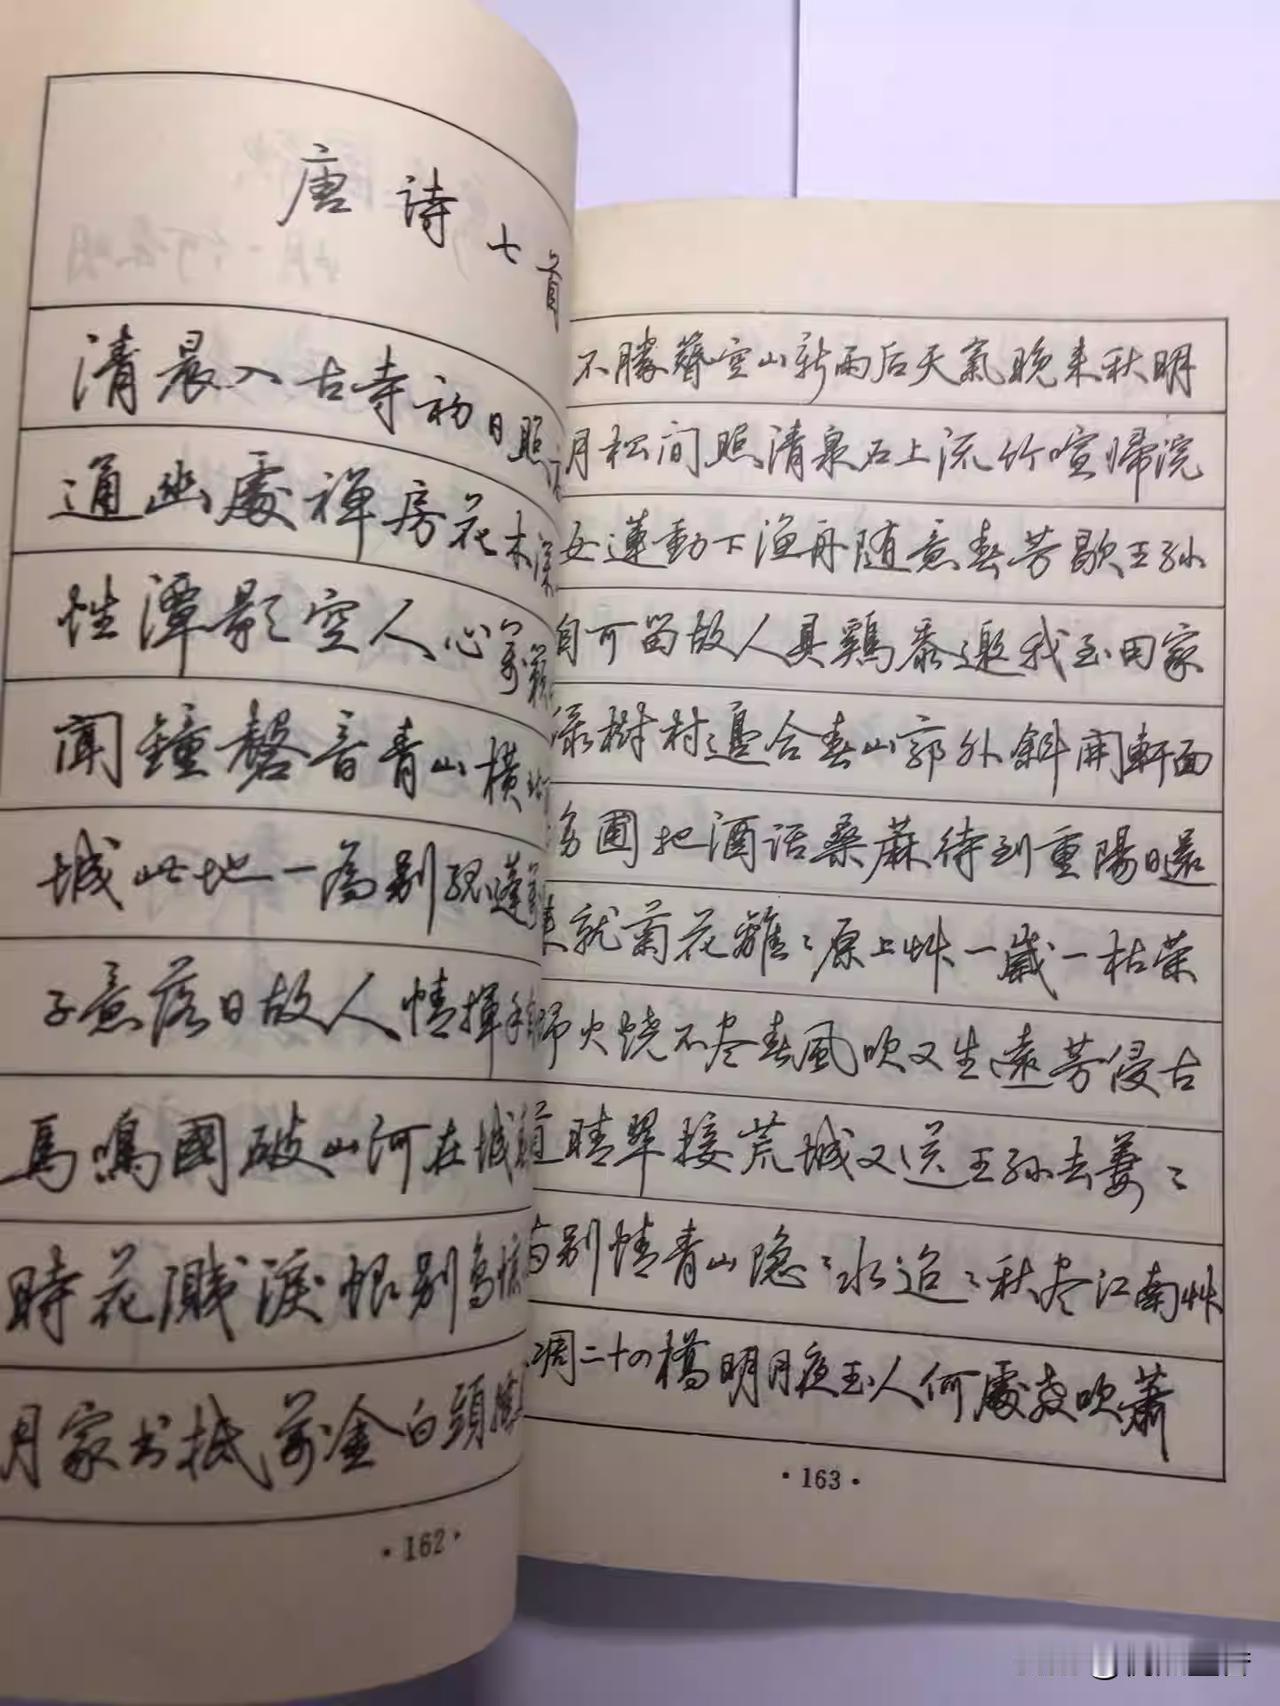 唐诗七首
清晨入古寺初日照
通幽處禅房花木深
性潭影空人心萬籟
闻鐘磬音青山横
城此地一為别孤蓬
子意落日故人情揮手
馬鳴國破山河在城
時花濺淚恨别鳥驚
月家书抵萬金白頭搔
·162·
不勝簪空山新雨后天氣晚来秋明
月松间照清泉石上流竹喧歸浣
女蓮動下渔舟随意春芳歇王孫
自可留故人具鷄黍邀我至田家
绿樹村邊合青山郭外斜開軒面
場圃把酒话桑蔴待到重陽日還
来就菊花離〻原上艸一歲一枯荣
野火烧不尽春風吹又生遠芳侵古
道晴翠接荒城又送王孫去萋〻
滿别情青山隐〻水迢〻秋尽江南艸
凋二十四橋明月夜玉人何處教吹萧
·163·